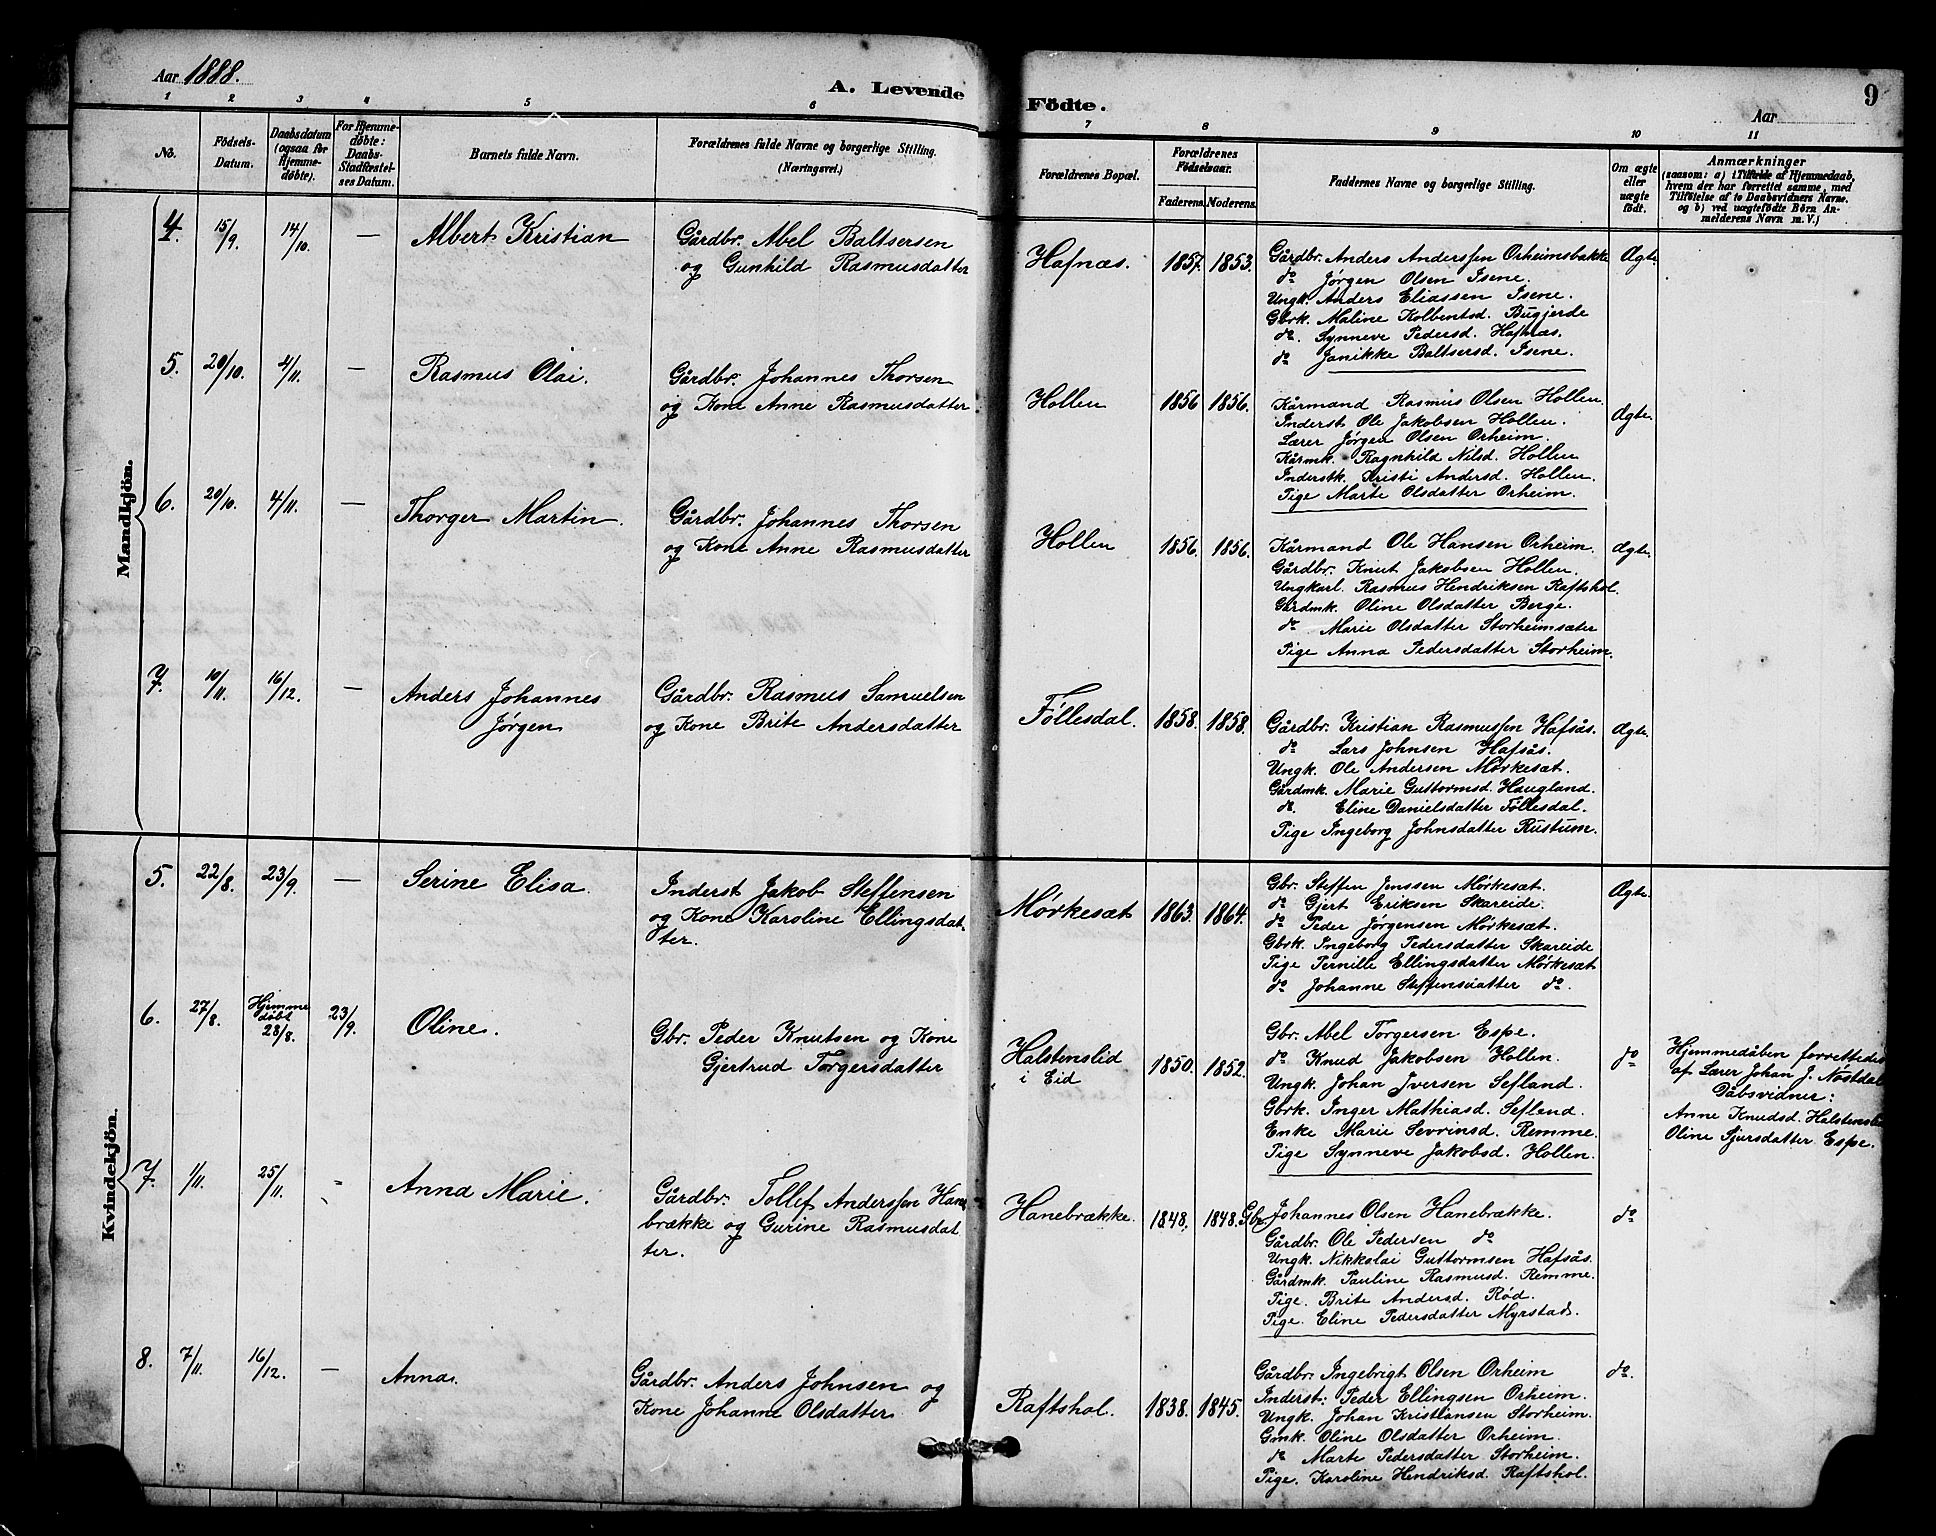 Aar 1888.
A. Levende Födte.
Aar
9
1 2 3 4 5 6 7 8 9 10 11
No.
Födsels-
Datum.
Daabsdatum
(ogsaa for
Hjemme-
døbte).
For Hjemme-
døbte:
Daabs-
Stadfæstel-
ses Datum.
Barnets fulde Navn.
Forældrenes fulde Navne og borgerlige Stilling.
(Næringsvei.)
Forældrenes Bopæl.
Forældrenes
Födselsaar.
Faderens. Moderens.
Faddernes Navne og borgerlige Stilling.
Om ægte
eller
uægte
födt.
Anmærkninger
(saasom: a) i Tilfælde af Hjemmedaab,
hvem der har forrettet samme, med
Tilföielse af to Daabsvidners Navne.
og b) ved uægtefödte Börn An-
melderens Navn m.V.)
Mandkjön.
4. 15/9. 14/10. — Albert Kristian
Gårdbr. Abel Baltsersen
og Gunhild Rasmusdatter
Hafnæs. 1857. 1853.
Gårdbr. Anders Anderssen Orheimsbakke
do Jørgen Olsen Isene.
Ungk. Anders Eliassen Isene.
Gbrk. Maline Kolbentsd. Bugjerde
do. Synneve Pedersd. Hafnæs.
do Janikke Baltsersd. Isene.
Ægte.
5. 20/10. 4/11. — Rasmus Olai.
Gårdbr. Johannes Thorsen
og Kone Anne Rasmusdatter
Hollen 1856 1856.
Kårmand Rasmus Olsen Hollen.
Inderst Ole Jakobsen Hollen.
Lærer Jørgen Olsen Orheim.
Kårmk. Ragnhild Nilsd. Hollen
Inderstk. Kristi Andersd. Hollen.
Pige Marte Olsdatter Orheim.
Ægte.
6. 20/10. 4/11. — Thorger Martin.
Gårdbr. Johannes Thorsen
og Kone Anne Rasmusdatter
Hollen 1856. 1856.
Kårmand Ole Hansen Orheim.
Gårdbr. Knut Jakobsen Hollen.
Ungkarl. Rasmus Hendriksen Raftshol.
Gårdmk. Oline Olsdatter Berge.
do Marie Olsdatter Storheimsæter
Pige Anna Pedersdatter Storheim.
Ægte.
7. 10/11. 16/12. — Anders Johannes
Jørgen
Gårdbr. Rasmus Samuelsen
og Kone Brite Andersdatter
Föllesdal. 1858. 1858.
Gårdbr. Kristian Rasmussen Hafsås.
do Lars Johnsen Hafsås.
Ungk. Ole Andersen Mørkesæt.
Gårdmk. Marie Guttormsd. Haugland.
do. Eline Danielsdatter Föllesdal.
Pige Ingeborg Johnsdatter Rustum.
Ægte.
Kvindekjön.
5. 22/8. 23/9. — Serine Elisa.
Inderst Jakob Steffensen
og Kone Karoline Ellingsdat-
ter.
Mørkesæt 1863. 1864.
Gbr. Steffen Jenssen Mørkesæt.
do Gjert Eriksen Skareide.
do Peder Jørgensen Mørkesæt.
Gbrk. Ingeborg Pedersdatter Skareide
Pige Pernille Ellingsdatter Mørkesæt
do Johanne Steffensdatter do.
Ægte.
6. 27/8. Hjemme
døbt
28/8. 23/9. Oline.
Gbr. Peder Knutsen og Kone
Gjertrud Torgersdatter
Halstenslid
i Eid
1850. 1852.
Gbr. Abel Torgersen Espe.
do Knud Jakobsen Hollen.
Ungk. Johan Iversen Sefland.
Gbrk. Inger Mathiasd. Seflend.
Enke Marie Sevrinsd. Remme.
Pige Synneve Jakobsd. Hollen.
do
Hjemmedåben forrettedes
af Lærer Johan J. Nøstdal
Dåbsvidner:
Anne Knudsd. Halstensli
Oline Sjursdatter Espe.
7. 1/11. 25/11. – Anna Marie.
Gårdbr. Tollef Anderssen Hane
brække og Gurine Rasmusdat
ter.
Hanebrække. 1848. 1848.
Gbr Johannes Olsen Hanebrække.
Gårdbr. Ole Pedersen do
Ungk. Nikkolai Guttormsen Hafsås.
Gårdmk. Pauline Rasmusd. Remme.
Pige. Brite Andersd. Rød.
Pige. Eline Pedersdatter Myrstad.
do
8. 7/11. 16/12. — Anna.
Gårdbr. Anders Johnsen og
Kone Johanne Olsdatter.
Raftshol. 1838. 1845.
Gårdbr. Ingebrigt Olsen Orheim
Inderst: Peder Ellingsen Orheim.
Ungk. Johan Kristiansen Storheim.
Gmk. Oline Olsdatter Orheim.
do Marte Pedersdatter Storheim.
Pige. Karoline Hendriksd. Raftshol.
do.